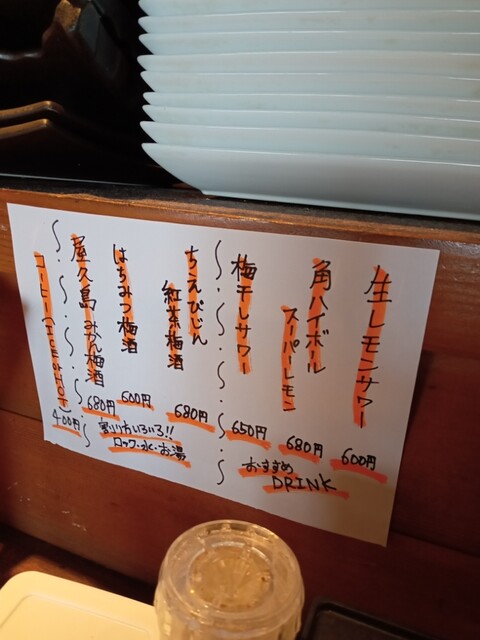 生レモンサワー
600円
角ハイボール
スーパーレモン
680円
梅干しサワー
650円
おすすめ
DRINK
ちえびじん
紅茶梅酒
680円
はちみつ梅酒
600円
屋久島みかん梅酒
680円
割り方いろいろ!!
ロック・水・お湯
コーヒー(ICE or HOT)
400円